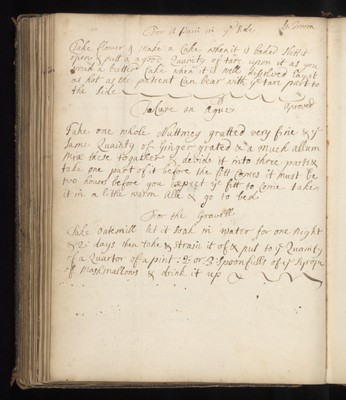 For A Pain in ye Side
Take flower & Make a Cake when it is baked Slitt it
open & putt a good Quantity of tarr upon it as you
Spread a butter Cake when it is well desolved lay it
as hot as the patient Can bear with ye tarr part to
the Side
To Cure an Ague
Aproved
Take one whole Nuttmeg gratted very fine & ye
Same Quaintty of Ginger grated & as much allum
Mix these togather & devide it into three parts &
take one part of it before the fitt Comes it must be
two houers before you Expect ye fitt to Come take
it in a little warm Alle & go to bed
For the Gravell
Take oatemill let it Soak in water for one Night
& 2 days then take & strain it of & put to ye Quainty
of a Quarter of a pint: 2: or 3: Spoonfulls of ye Syrope
of Marshmallows & drink it up